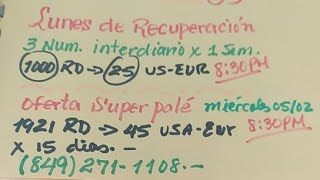 Lunes de Recuperación
3 Num. interdiario x 1 Sem.
1000 RD → 25 US-EUR 8:30PM
Oferta Super palé miércoles 05/02
1921 RD → 45 USA-Eur 8:30PM
x 15 dias. -
(849) 271-1108. -